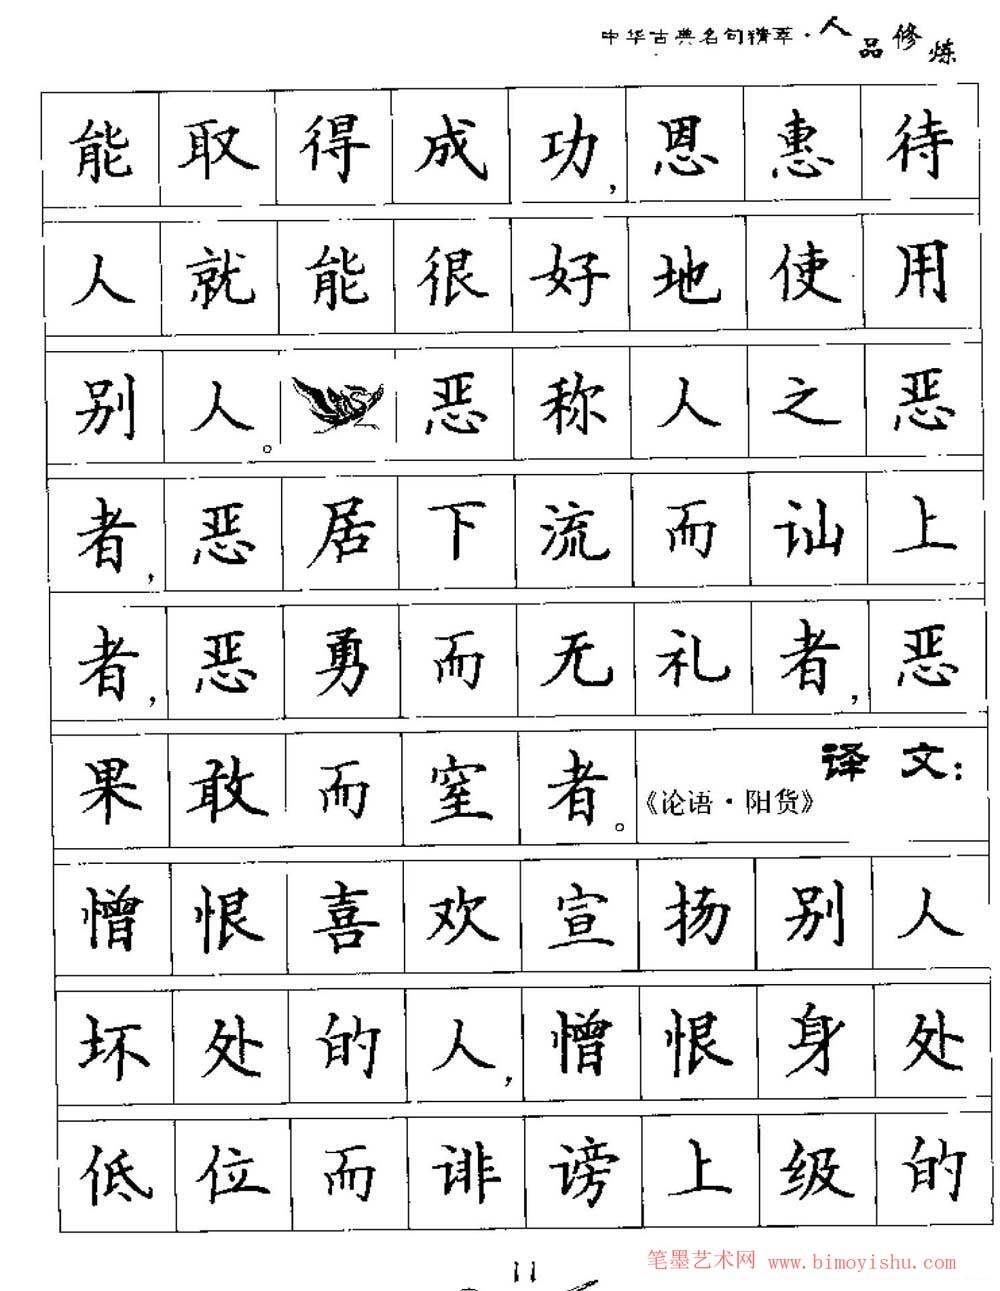 中华古典名句精萃·人品修炼
能取得成功,恩惠待
人就能很好地使用
别人。恶称人之恶
者,恶居下流而讪上
者,恶勇而无礼者,恶
果敢而窒者。《论语·阳货》译文:
憎恨喜欢宣扬别人
坏处的人,憎恨身处
低位而诽谤上级的
11
笔墨艺术网 www.bimoyishu.com